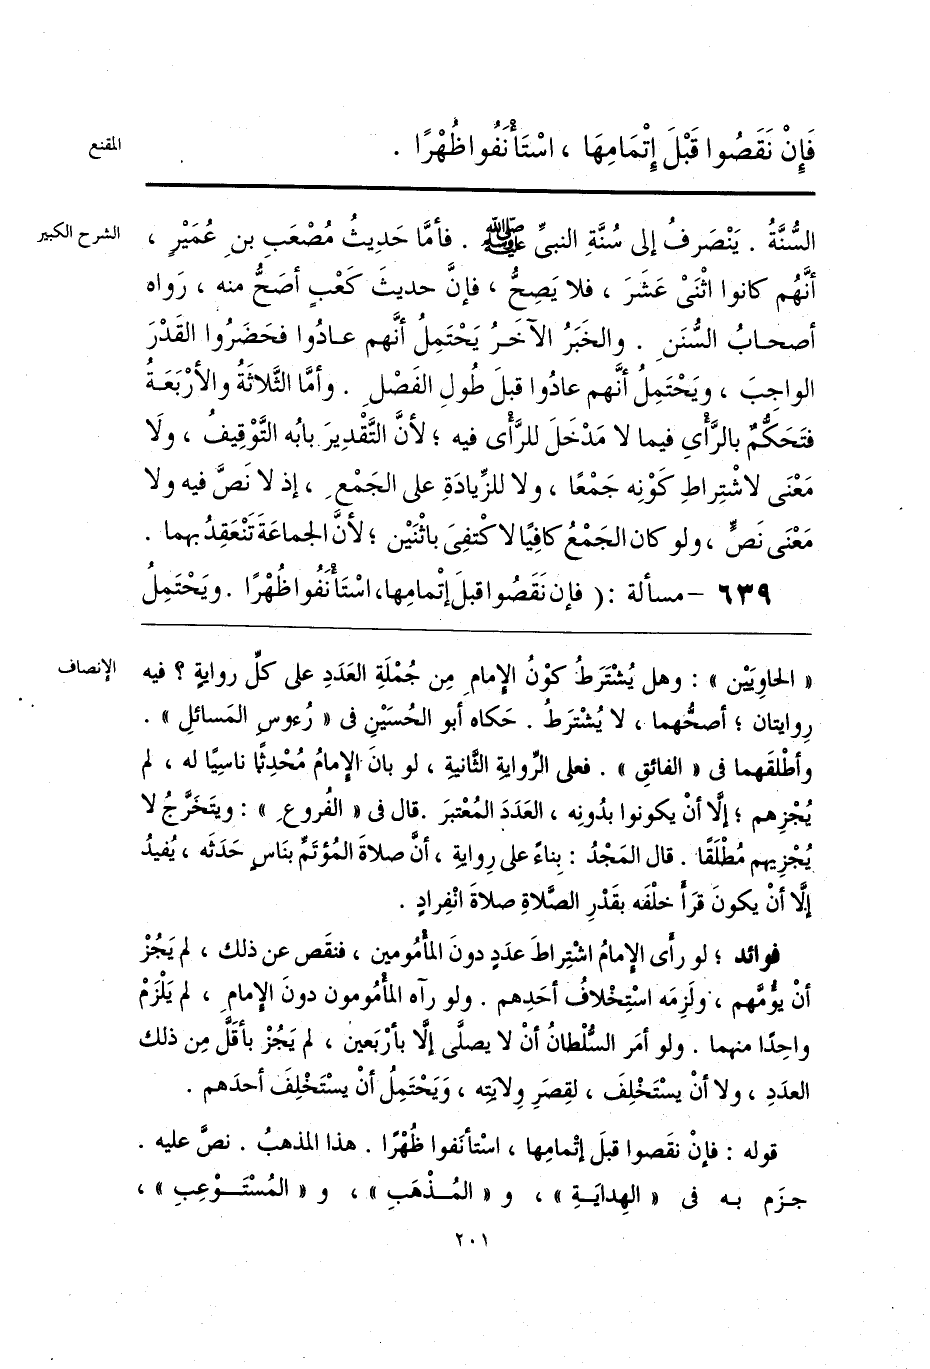 المقنع
فَإِنْ نَقَصُوا قَبْلَ إِتْمَامِهَا ، اسْتَأْنَفُوا ظُهْرًا .
الشرح الكبير
السُّنَّةُ . يَنْصَرِفُ إلى سُنَّةِ النبىِّ ﷺ . فأمَّا حَدِيثُ مُصْعَبِ بنِ عُمَيْرٍ ،
أنَّهُم كانوا اثْنَىْ عَشَرَ ، فلا يَصِحُّ ، فإنَّ حديثَ كَعْبٍ أصَحُّ منه ، رَواه
أصحابُ السُّنَنِ . والخَبَرُ الآخَرُ يَحْتَمِلُ أنَّهم عادُوا فحَضَرُوا القَدْرَ
الواجِبَ ، ويَحْتَمِلُ أنَّهم عادُوا قبلَ طُولِ الفَصْلِ . وأمَّا الثَّلاثَةُ والأرْبَعَةُ
فتَحَكُّمٌ بالرَّأْىِ فيما لا مَدْخَلَ للرَّأْى فيه ؛ لأنَّ التَّقْدِيرَ بابُه التَّوْقِيفُ ، ولَا
مَعْنَى لاشْتِراطِ كَوْنِه جَمْعًا ، ولا للزِّيادَةِ على الجَمْعِ ، إذ لا نَصَّ فيه ولا
مَعْنَى نَصٍّ ، ولو كان الجَمْعُ كافِيًا لاكْتفِىَ باثْنَيْن ؛ لأنَّ الجماعَةَ تَنْعَقِدُ بهما .
٦٣٩ – مسألة : ( فإن نَقَصُوا قبلَ إتْمامِها ، اسْتَأْنَفُوا ظُهْرًا . ويَحْتَمِلُ
الإنصاف
« الحاوِيَيْن » : وهل يُشْتَرَطُ كَوْنُ الإِمامِ مِن جُمْلَةِ العَدَدِ على كلِّ روايةٍ ؟ فيه
رِوايتان ؛ أصحُّهما ، لا يُشْتَرَطُ . حَكاه أبو الحُسَيْنِ فى « رُءوسِ المَسائلِ » .
وأطْلقَهما فى « الفائقِ » . فعلى الرِّوايةِ الثَّانيةِ ، لو بانَ الإِمامُ مُحْدِثًا ناسِيًا له ، لم
يُجْزِهم ؛ إلَّا أنْ يكونوا بدُونِه ، العَدَدَ المُعْتبَرَ . قال فى « الفُروعِ » : ويتَخَرَّجُ لا
يُجْزِيهم مُطْلَقًا . قال المَجْدُ : بِناءً على رِوايةِ ، أنَّ صلاةَ المُؤتَمِّ بنَاسٍ حَدَثَه ، يُفيدُ
إلَّا أنْ يكونَ قرَأَ خلْفَه بقَدْرِ الصَّلاةِ صلاةَ انْفِرادٍ .
فوائد ؛ لو رأَى الإِمامُ اشْتِراطَ عدَدٍ دونَ المأْمُومين ، فنقَص عن ذلك ، لم يَجُزْ
أنْ يؤُمَّهم ، ولَزِمَه اسْتِخْلافُ أحَدِهم . ولو رآه المأْمُومون دونَ الإِمامِ ، لم يَلْزَمْ
واحِدًا منهما . ولو أمَر السُّلْطانُ أنْ لا يصلَّى إلَّا بأرْبَعين ، لم يَجُزْ بأقَلَّ مِن ذلك
العدَدِ ، ولا أنْ يسْتَخْلِفَ ، لقِصَرِ وِلايَتِه ، وَيَحْتَمِلُ أنْ يسْتَخْلِفَ أحدَهم .
قوله : فإنْ نقَصوا قبلَ إتْمامِها ، اسْتأنَفوا ظُهْرًا . هذا المذهبُ . نصَّ عليه .
جزَم به فى « الهِدايَةِ » ، و « المُذْهَبِ » ، و « المُسْتَوْعِبِ » ،
٢٠١